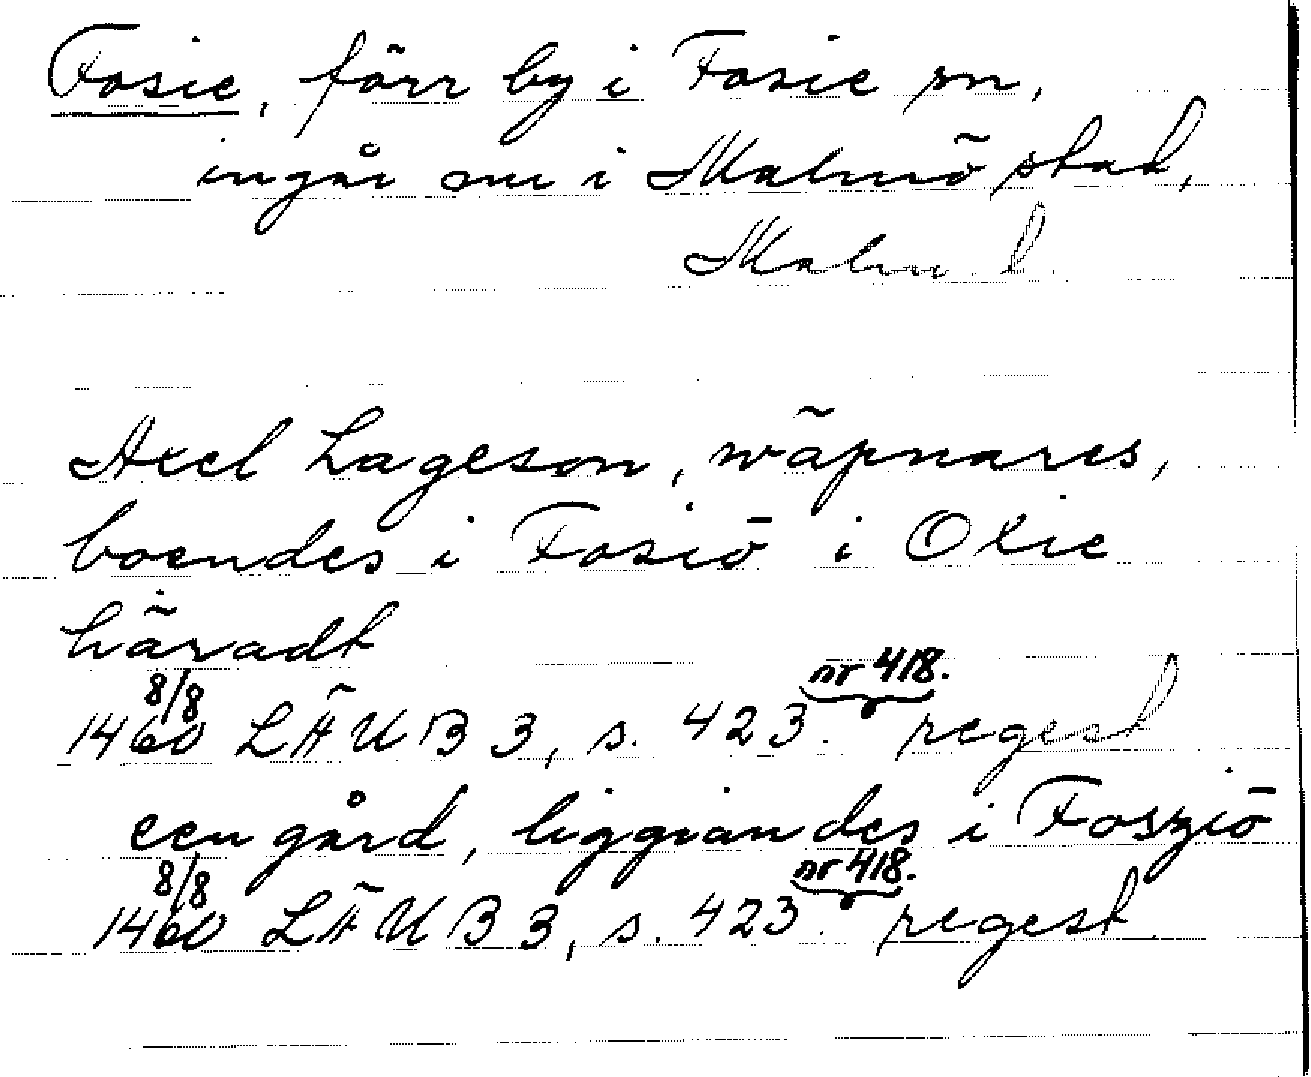 Fosie, förr by i Fosie sn,
ingår nu i Malmö stad,
Malm. l.
Axel Lageson, wäpnares,
boendes i Fosiö i Oxie
häradt
8/8 nr 418.
1460 LÄUB 3, s. 423. regest
een gård, liggiandes i Foszziö
8/8 nr 418.
1460 LÄUB 3, s. 423. regest